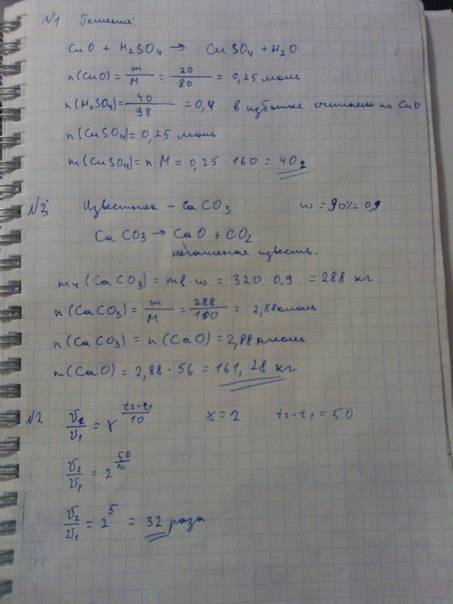 N1 Решение:
CuO + H2SO4 → CuSO4 + H2O
n(CuO) = m/M = 20/80 = 0,25 моль
n(H2SO4) = 40/98 = 0,4 в избытке считаем по CuO
n(CuSO4) = 0,25 моль
m(CuSO4) = n·M = 0,25 160 = 40г
N3 Известняк - CaCO3 w = 90% = 0,9
CaCO3 → CaO + CO2
негашеная известь.
mч(CaCO3) = mв·w = 320·0,9 = 288 кг
n(CaCO3) = m/M = 288/100 = 2,88 кмоль
n(CaCO3) = n(CaO) = 2,88 кмоль
m(CaO) = 2,88·56 = 161,28 кг
N2 v2/v1 = γ^(t2-t1/10) γ = 2 t2-t1 = 50
v2/v1 = 2^(50/10)
v2/v1 = 2^5 = 32 раза